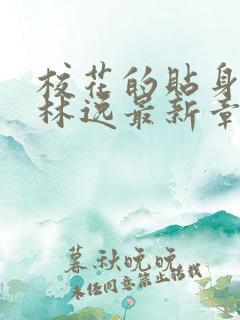 校花的贴身
林逸最新章
暮秋晚晚
未经同意禁止转载